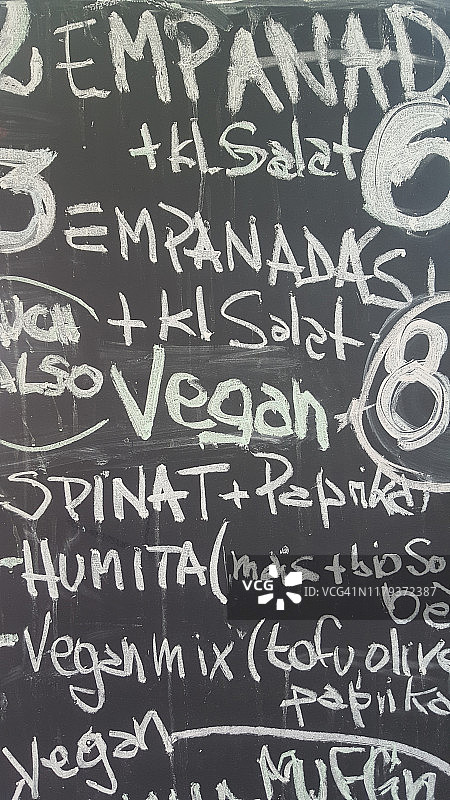 2 EMPANAD
+ kl Salat 6
3 EMPANADAS
+ kl Salat 8
ALSO
Vegan
SPINAT + Paprika
- HUMITA (mais + bio So
- Vegan mix (tofu, olive
paprika
vegan
MUFFIN
VCG
ID: VCG41N1179372387